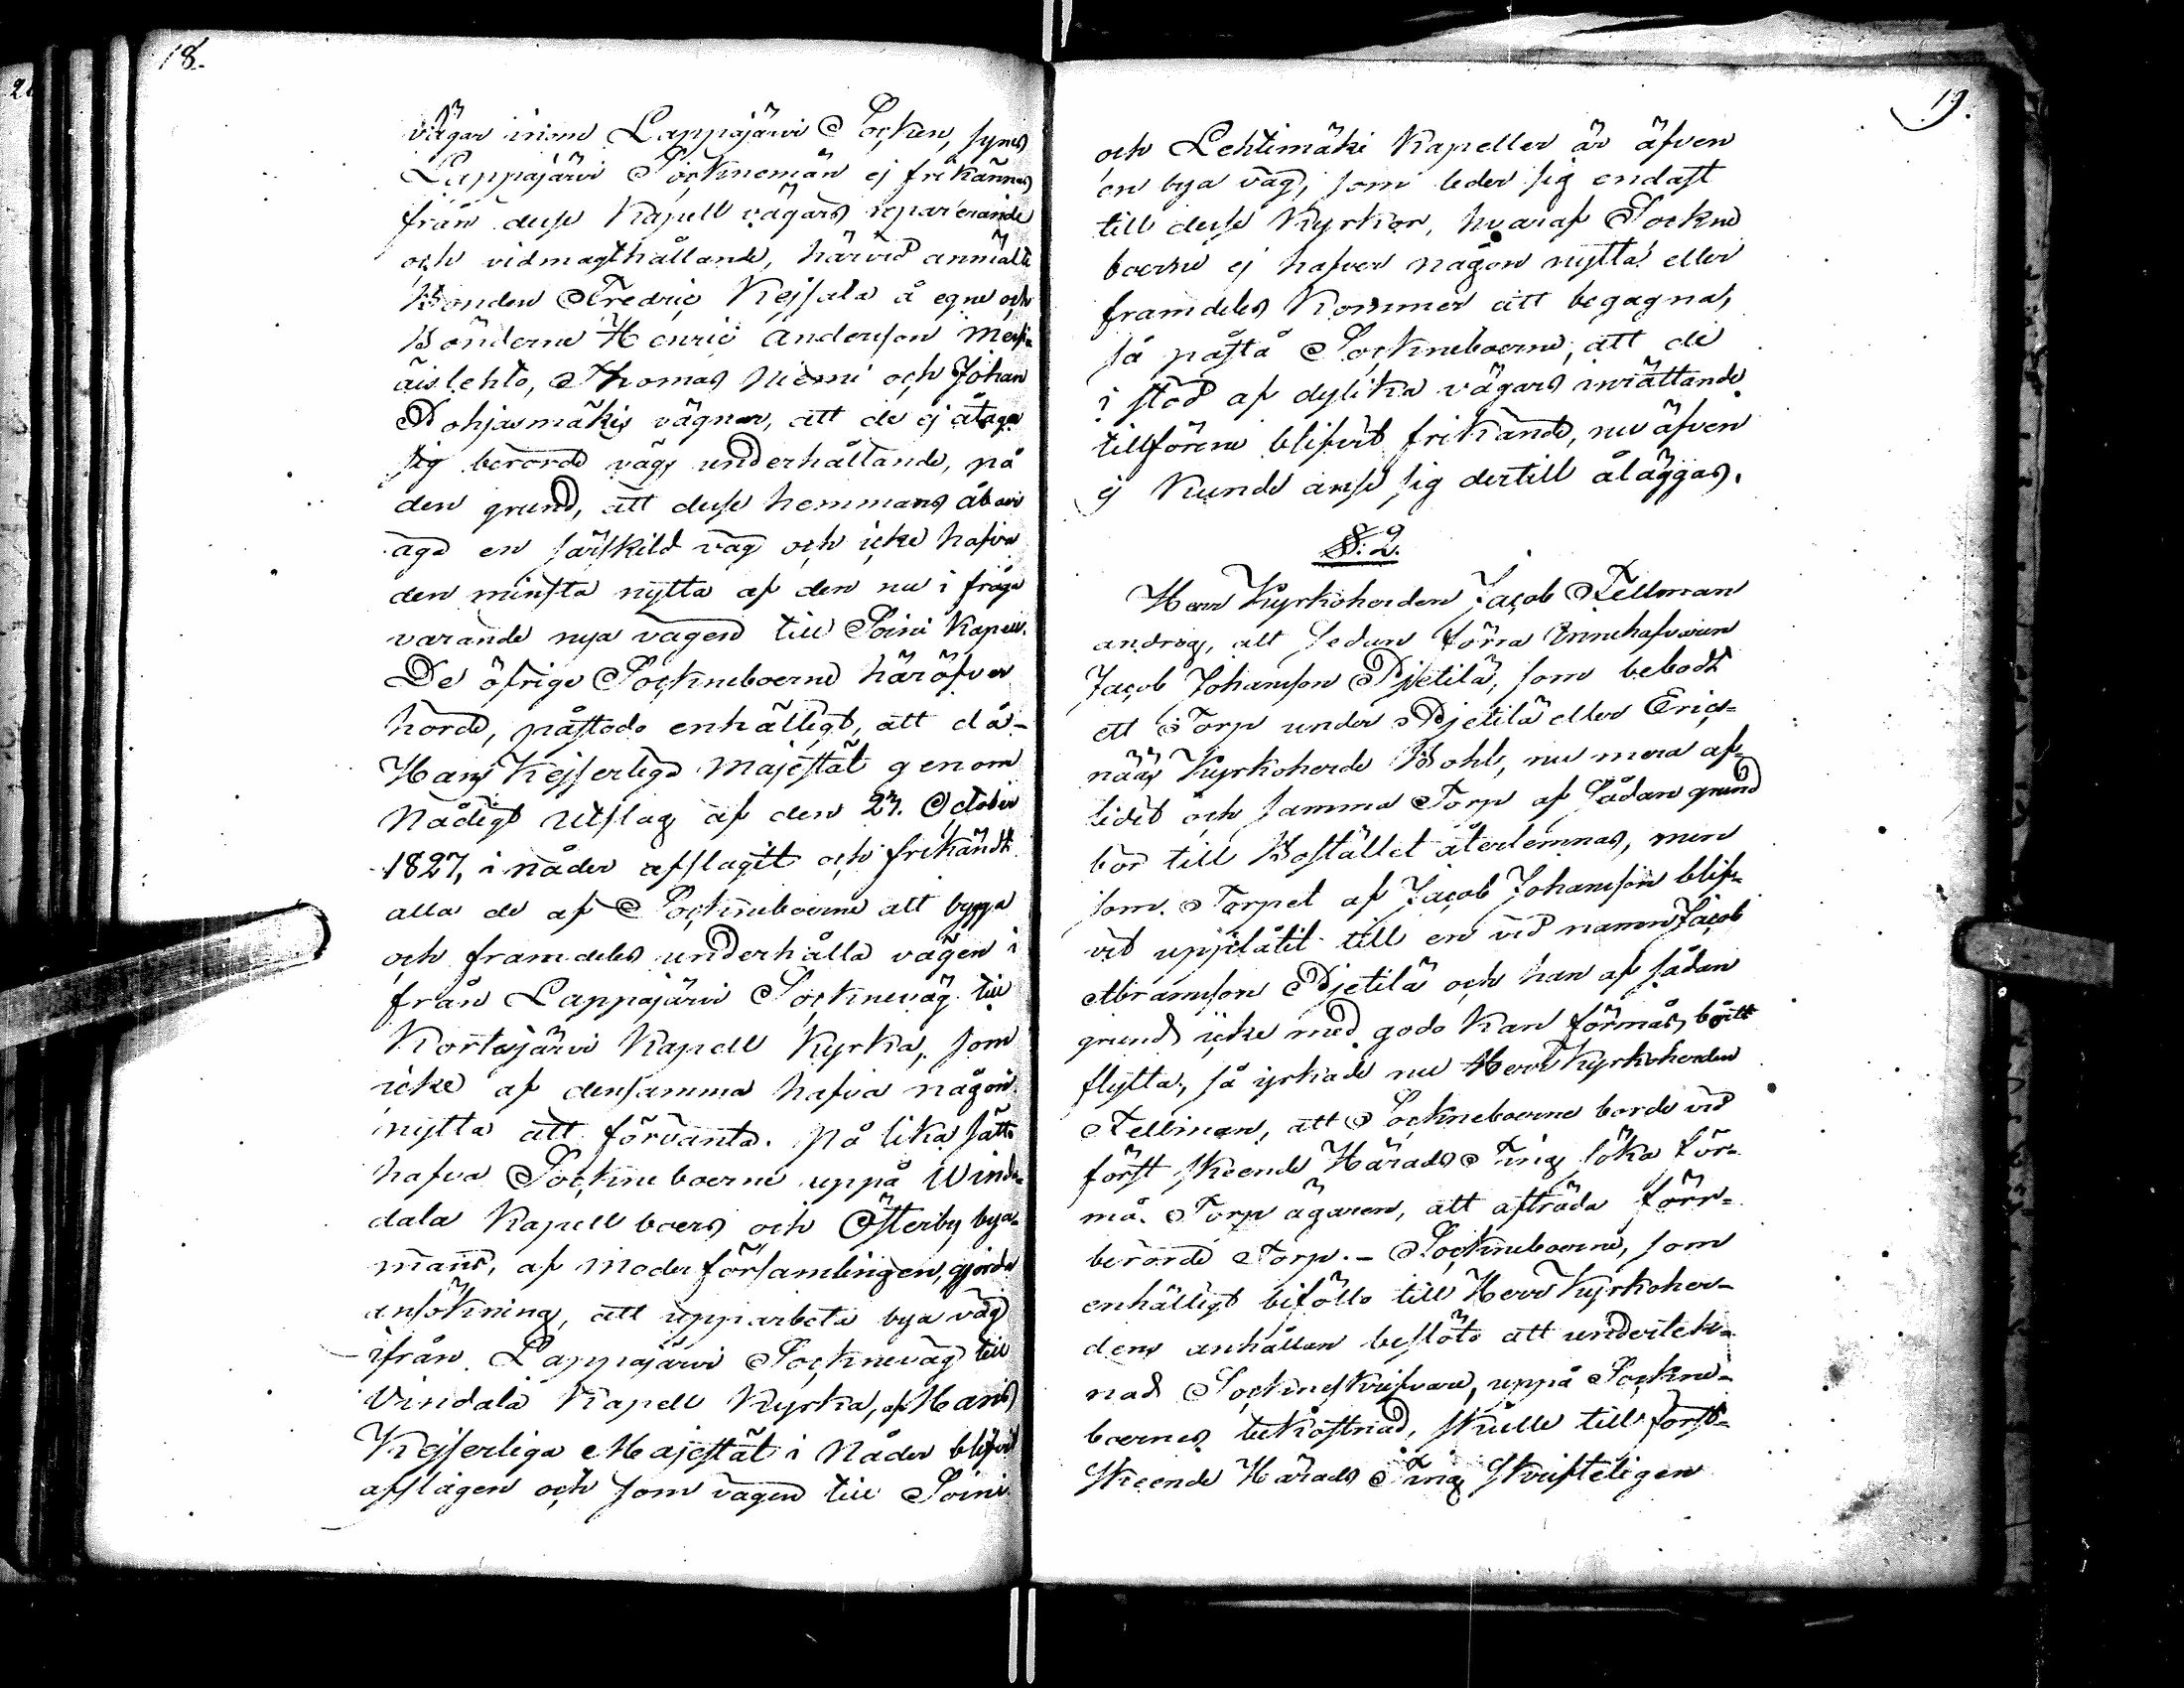 18.
vägar inom Lappajärvi Socken, synes
Lappajärvi Socknemän ej frikännas
från desse Kapell vägars reparerande
och vidmagthållande, härvid anmälte
Bonden Fredric Kejsala å egne och
Bönderne Henric Andersson
äislehto, Thomas Niemi och Johan
Pohjasmäkis vägnar, att de ej åtaga
sig berörde vägs underhållande, på
den grund, att desse hemmans åboer
äga en särskild väg och icke hafva
den minsta nytta af den nu i fråga
varande nya vägen till Soini Kapell.
De öfrige Sockneboerne häröfver
hörde, påstodo enhälligt, att då
Hans Kejserliga Majestät genom
Nådigt Utslag af den 23. October
1827, i nåder afslagit och frikändt
alla de af Sockneboerne att bygga
och framdeles underhålla vägen i
från Lappajärvi Sockneväg till
Kortesjärvi Kapell Kyrka, som
icke af densamma hafva någon
nytta att förvänta. På lika sätt
hafva Sockneboerne uppå Winde-
dala Kapellboers och Österby bya-
mäns, af moderförsamlingen, gjorde
ansökning, att upparbeta bya väg
ifrån Lappajärvi Sockneväg till
Vindala Kapell Kyrka, af Hans
Kejserliga Majestät i Nåder blifvit
afslagen och som vägen till Soini
19.
och Lehtimäki Kapeller är äfven
en bya väg, som leder sig endast
till desse Kyrkor, hvaraf Sockne
boerne ej hafver någon nytta eller
framdeles kommer att begagnas,
så påstå Sockneboerne, att de
i stöd af dylika vägars inrättande
tillförene blifvit frikände, nu äfven
ej kunde anse sig dertill åläggas.
§. 2.
Herr Kyrkoherden Jacob Fellman
androg, att sedan förra Innehafvaren
Jacob Johansson Pjetilä, som bebodt
ett Torp under Pjetilä eller Erics-
nääs Kyrkoherde Bohl, nu mera af-
lidit och samma Torp af sådan grund
bör till Bostället återlemnas, men
som Torpet af Jacob Johansson blif-
vit upplåtit till en vid namn Jacob
Abramsson Pjetilä och han af sådan
grund icke med godo kan förmås bort
flytta, så yrkade nu Herr Kyrkoherden
Fellman, att Sockneboerne borde vid
först skeende Härads Ting söka för-
må Torp ägaren, att afträda förr-
berörde Torp. - Sockneboerne, som
enhälligt biföllo till Herr Kyrkoher-
dens anhållan beslöto att underteck-
nad Sockneskrifvare, uppå Sockne-
boernes bekostnad, skulle till först-
skeende Härads Ting skrifteligen